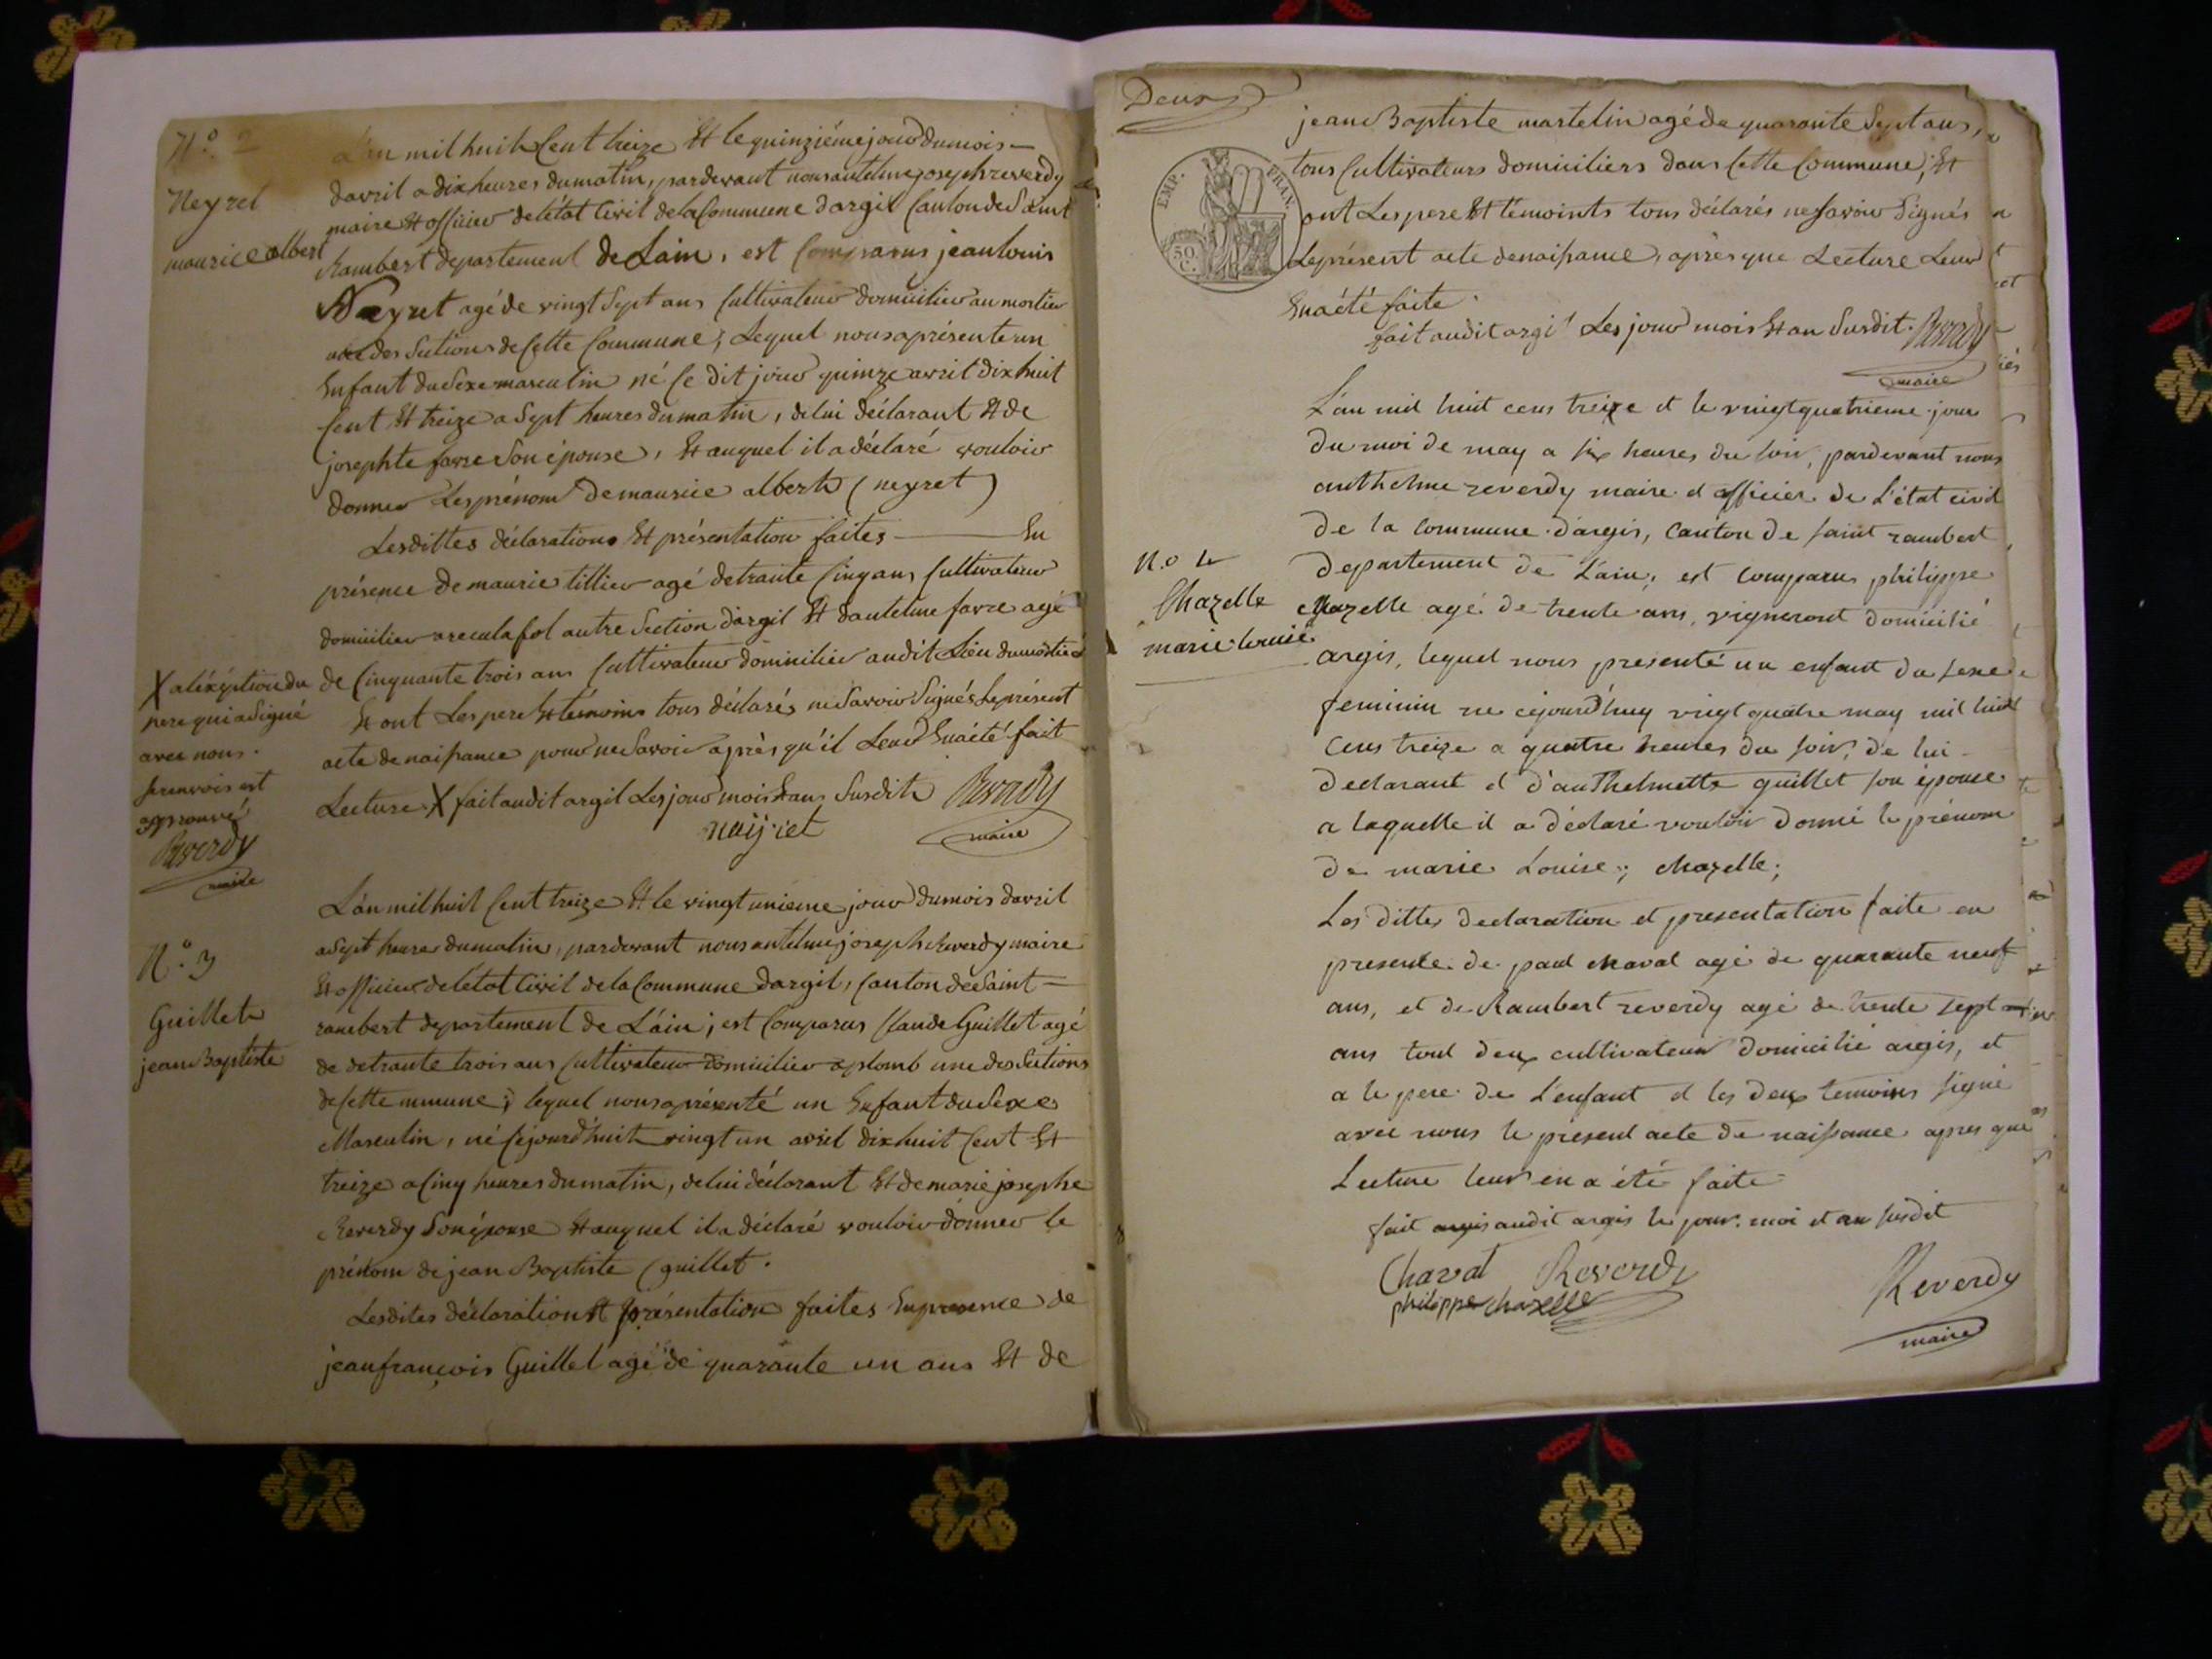 N.º 2
Neyret
maurice albert
L'an mil huit Cent treize Et le quinziéme jour du mois —
davril a dix heures du matin, pardevant nous antelme joseph reverdy
maire Et officier de létat Civil de la Commune dargil Canton de Saint
Rambert departement de Lain, est Comparus jean louis
Neyret agé de vingt Sept ans Cultivateur domicilier au mortier
une des Sections de Cette Commune; Lequel nous aprésente un
Enfant du Sexe masculin né Ce dit jour quinze avril dix huit
Cent Et treize a Sept heures du matin, de lui déclarant Et de
josephte favre Son épouse, Et auquel il a déclaré vouloir
donner Les prénom de maurice alberte (neyret)
Lesdittes déclarations Et présentation faites — En
présence de maurie tillier agé de trante Cinq ans Cultivateur
domicilier a reculafol autre Section dargil Et dantelme favre agé
de Cinquante trois ans Cultivateur domicilier audit Lieu du mortier
Et ont Les pere Et témoins tous déclarés ne Savoir Signés Le présent
acte de naissance pour ne Savoir après qu'il Leur En a été fait
Lecture X fait audit argil Les jour mois Et ans Susdit Reverdy
nayret maire
X a léxéption du
pere qui a Signé
avec nous.
Se renvois est
approuvé
Reverdy
maire
N.º 3
Guillet
jean Baptiste
L'an mil huit Cent treize Et le vingt unieme jour du mois davril
a Sept heures du matin, pardevant nous antelme joseph Reverdy maire
Et officier de létat Civil de la Commune dargil, Canton de Saint —
rambert departement de Láin; est Comparus Claude Guillet agé
de de trante trois ans Cultivateur domicilier a plomb une des Sections
de Cette mmune; lequel nous aprésenté un Enfant du Sexe
Masculin, né Cejourd'huit vingt un avril dix huit Cent Et
treize a Cinq heures du matin, de lui déclarant Et de marie josephe
Reverdy Son épouse Et auquel il a déclaré vouloir donner le
prénom de jean Baptiste (guillet.
Lesdites déclaration Et présentation faites En presence de
jean françois Guillet agé de quarante un ans Et de
Deux
EMP. FRAN.
50 C.
jean Baptiste martelin agé de quarante Sept ans,
tous Cultivateurs domiciliers dans Cette Commune; Et
ont Les pere Et témoints tous déclarés ne Savoir Signés
Le présent acte de naissance, après que Lecture Leur
En a été faite.
fait audit argil Les jour mois Et an Susdit. Reverdy
maire
N.o 4
Chazelle
marie louise
L'an mil huit cens treize et le vingt quatrieme jour
du moi de may a six heures du soir, pardevant nous
anthelme reverdy maire et officier de L'état civil
de la commune d'argis, canton de saint rambert
departement de L'ain, est comparu philippe
chazelle agé de trente ans, vigneront domicilié
argis, lequel nous presenté un enfant du sexe
feminin ne cejourd'huy vingt quatre may mil huit
cens treize a quatre heures du soir, de lui
declarant et d'anthelmette guillet son épouse
a laquelle il a déclaré vouloir donné le prénom
de marie Louise; chazelle;
Les dittes declaration et presentation faite en
presence de paul chaval agé de quarante neuf
ans, et de Rambert reverdy agé de trente sept
ans tout deux cultivateur domicilié argis, et
a le pere de L'enfant et les deux temoins signé
avec nous le present acte de naissance apres que
Lecture leur en a été faite
fait argis audit argis le jour, moi et an susdit
Chaval Reverdy
philippe chazelle
Reverdy
maire